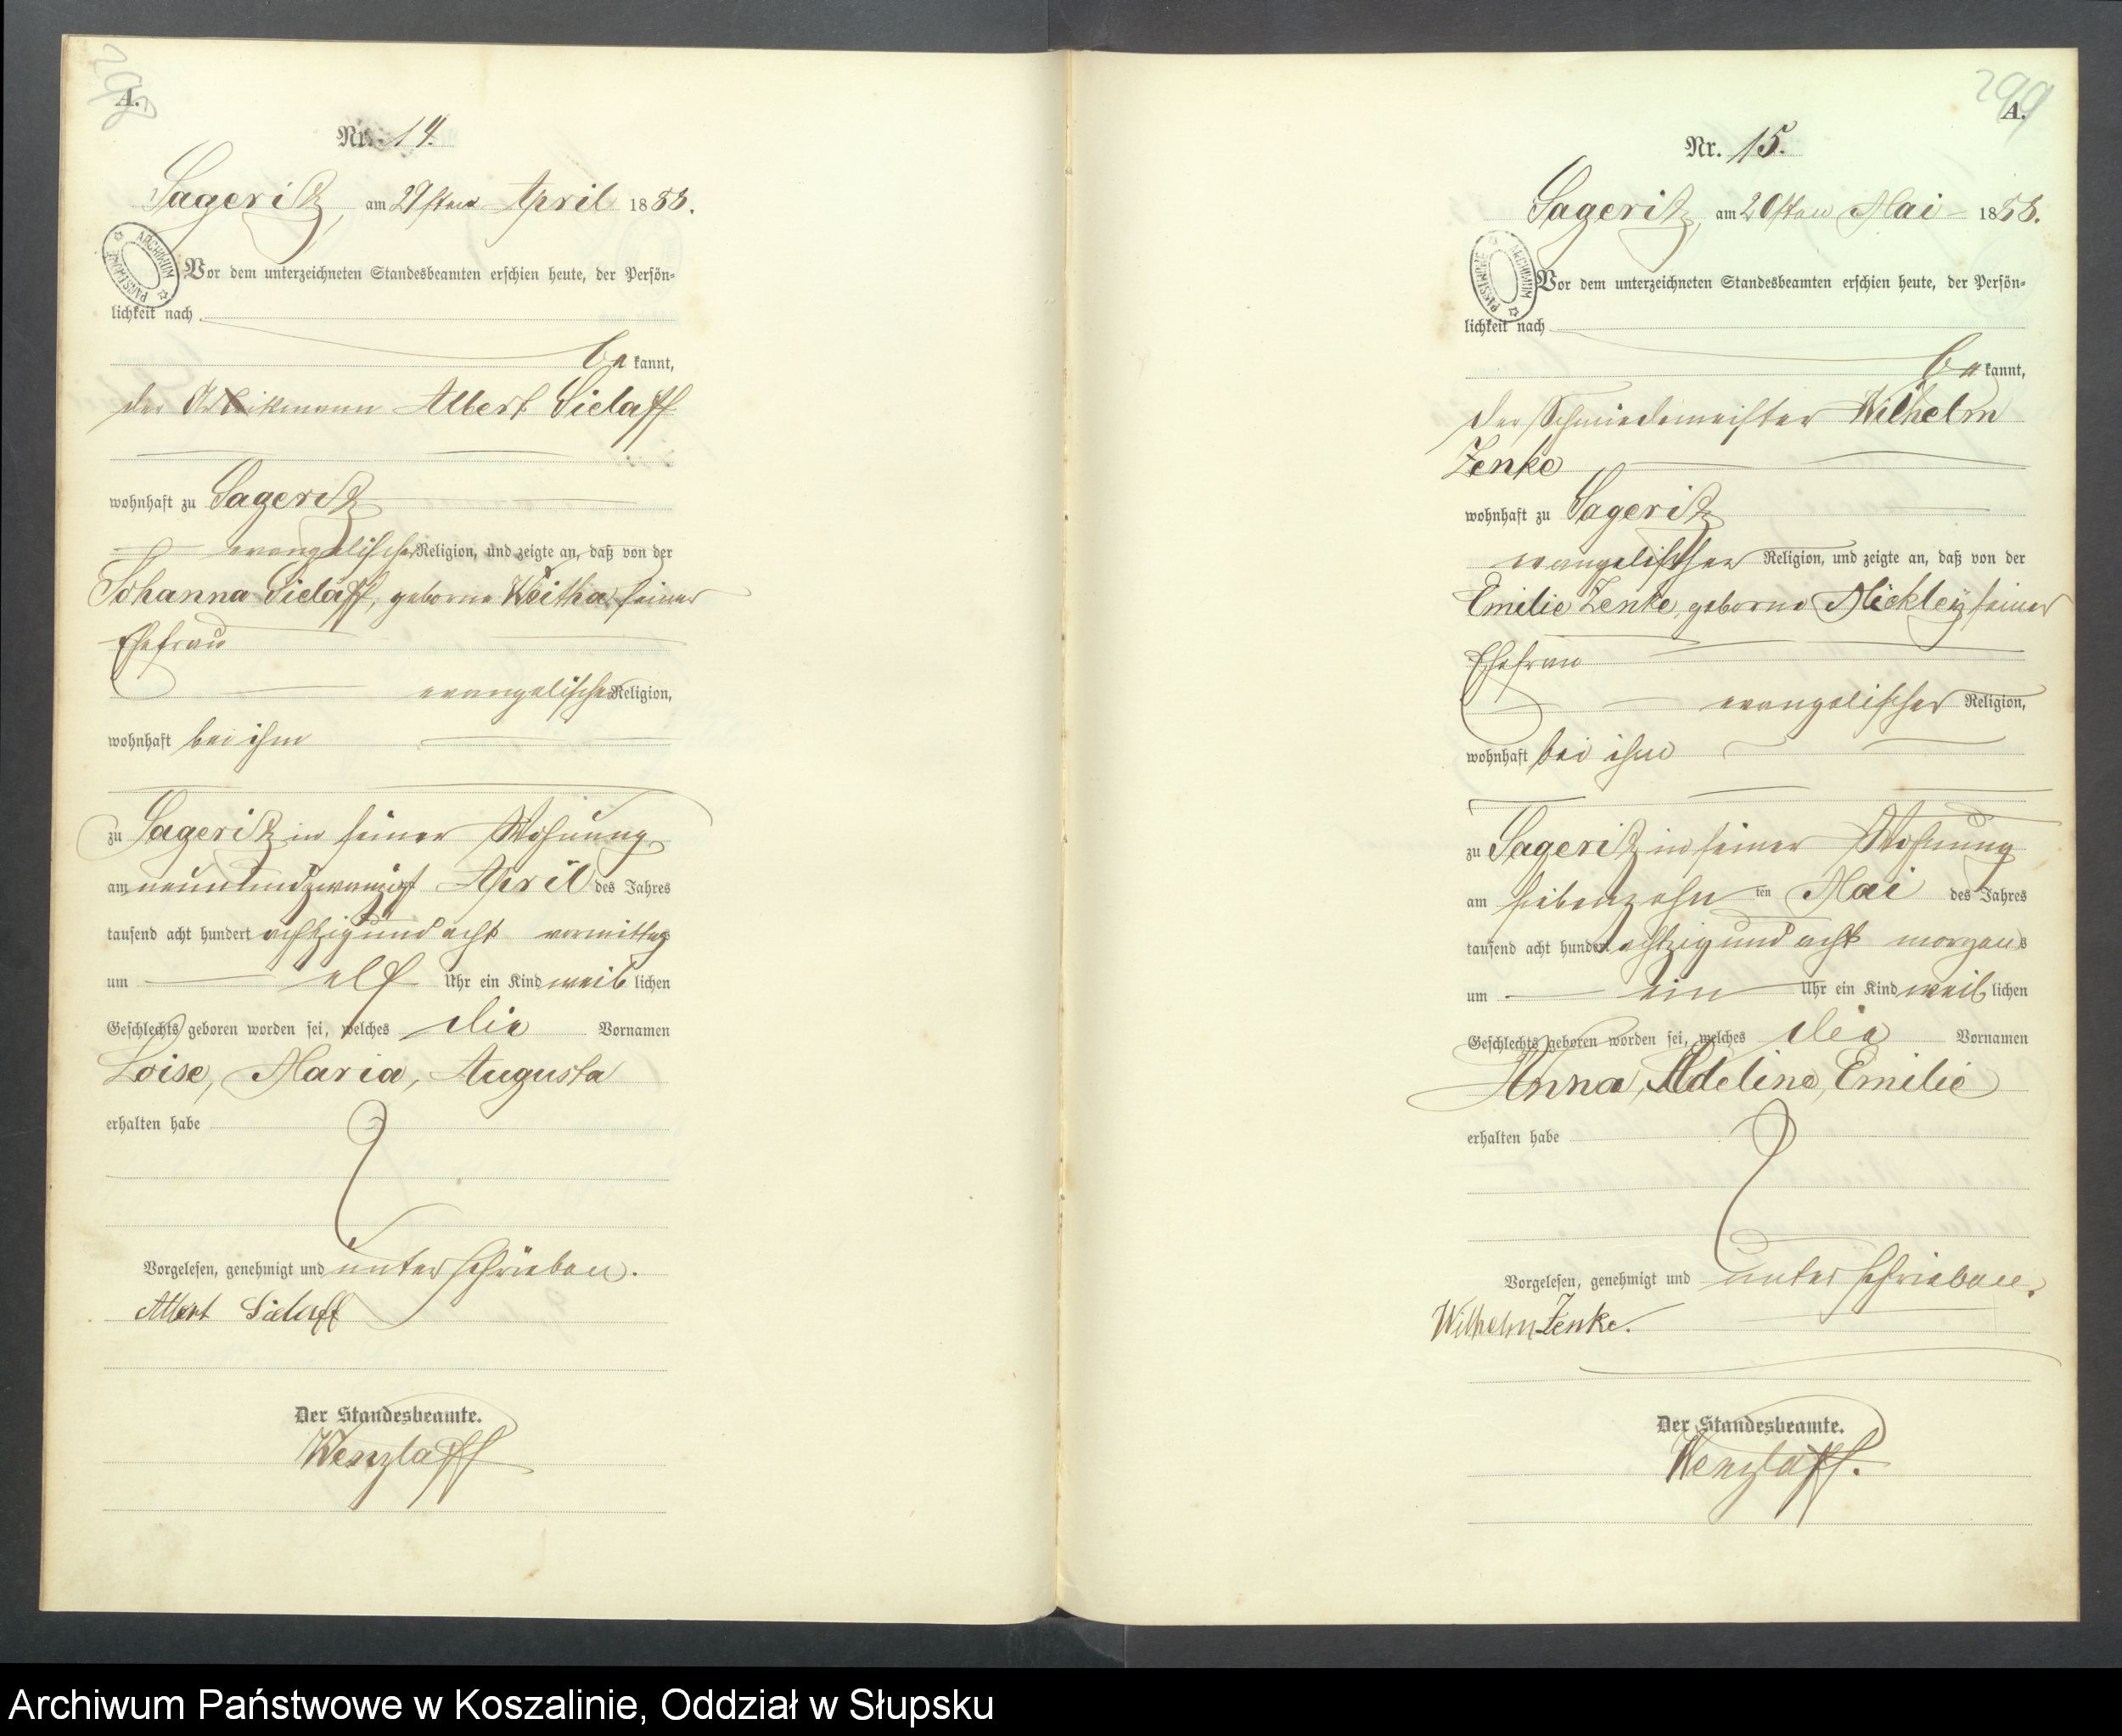 298
A.
Nr. 14.
Sageritz, am 29sten April 1888.
ARCHIWUM PAŃSTWOWE
Vor dem unterzeichneten Standesbeamten erschien heute, der Persön-
lichkeit nach
be kannt,
der Albert Sielaff
wohnhaft zu Sageritz
evangelischer Religion, und zeigte an, daß von der
Johanna Sielaff, geborne Woitha seiner
Ehefrau
evangelischer Religion,
wohnhaft bei ihm
zu Sageritz in seiner Wohnung
am neunundzwanzigst April des Jahres
tausend acht hundert achtzig und acht vormittag
um elf Uhr ein Kind weib lichen
Geschlechts geboren worden sei, welches die Vornamen
Loise, Maria, Augusta
erhalten habe
Vorgelesen, genehmigt und unterschrieben.
Albert Sielaff
Der Standesbeamte.
Wenzlaff
299
A.
Nr. 15.
Sageritz, am 20sten Mai 1888.
ARCHIWUM PAŃSTWOWE
Vor dem unterzeichneten Standesbeamten erschien heute, der Persön-
lichkeit nach
be kannt,
der Schmiedemeister Wilhelm
Zenke
wohnhaft zu Sageritz
evangelischer Religion, und zeigte an, daß von der
Emilie Zenke, geborne Mickley seiner
Ehefrau
evangelischer Religion,
wohnhaft bei ihm
zu Sageritz in seiner Wohnung
am siebenzehn ten Mai des Jahres
tausend acht hundert achtzig und acht morgens
um ein Uhr ein Kind weib lichen
Geschlechts geboren worden sei, welches die Vornamen
Anna, Adeline, Emilie
erhalten habe
Vorgelesen, genehmigt und unterschrieben.
Wilhelm Zenke.
Der Standesbeamte.
Wenzlaff.
Archiwum Państwowe w Koszalinie, Oddział w Słupsku